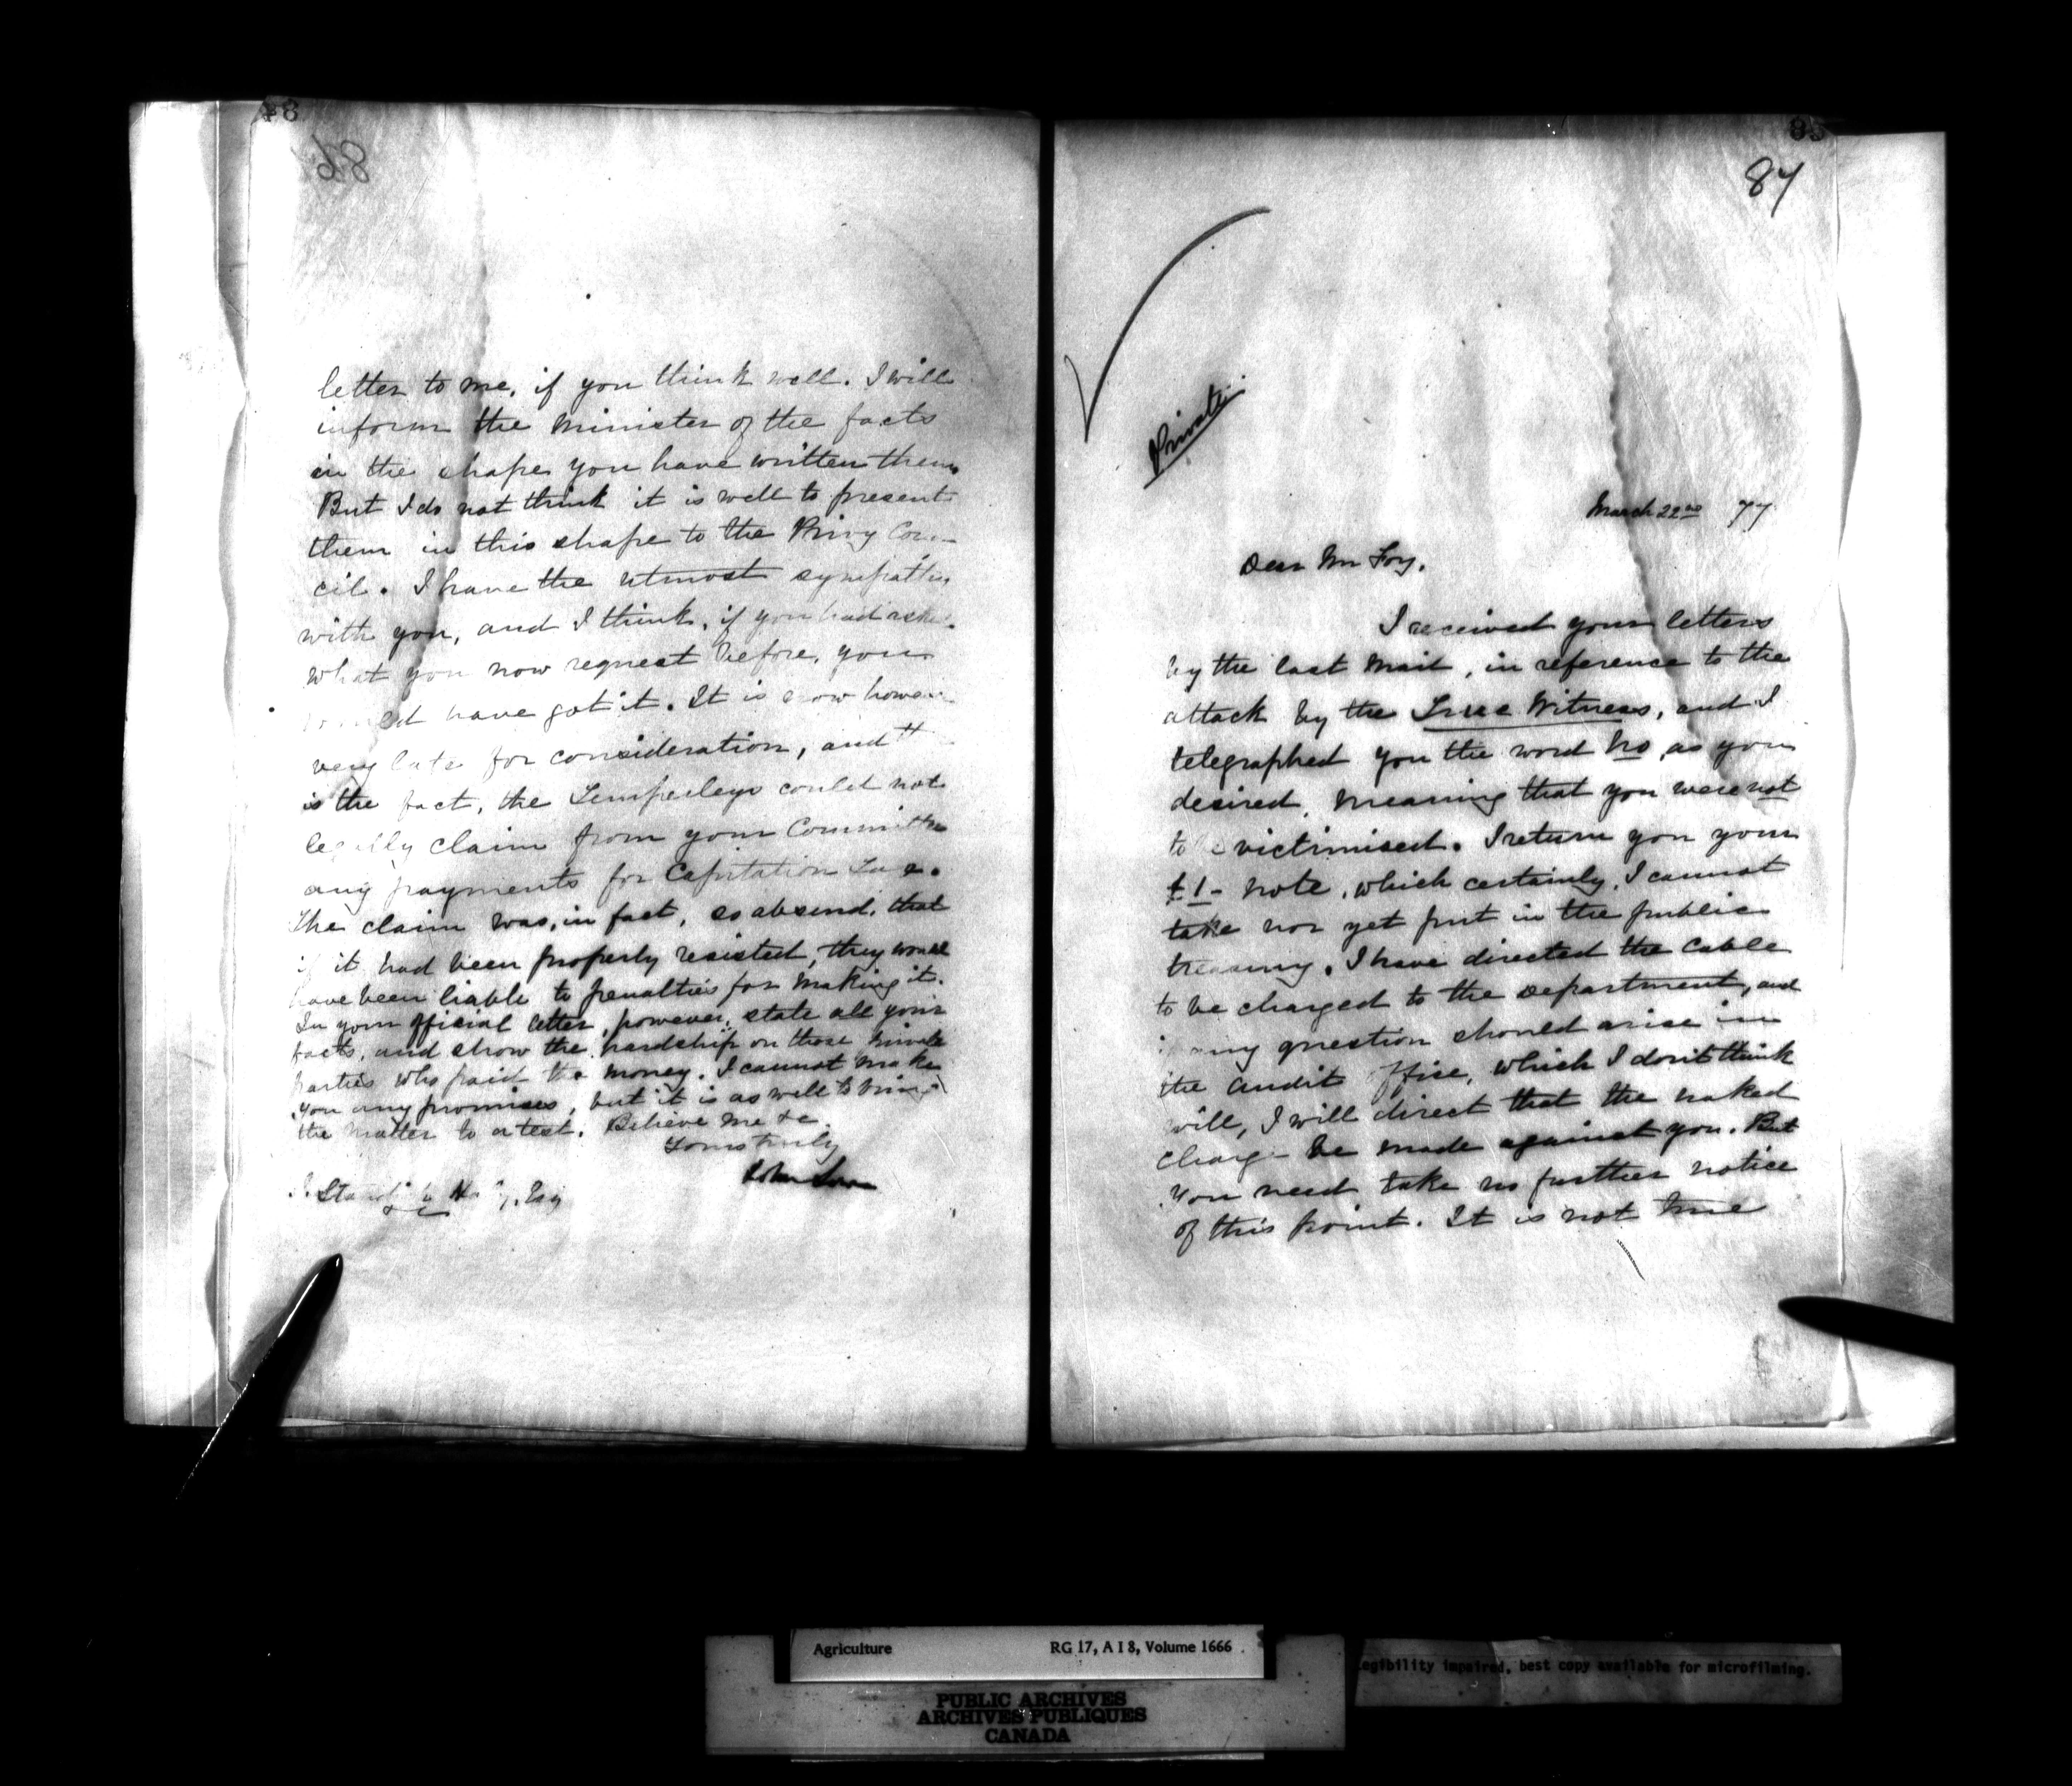 86
letter to me, if you think well. I will
inform the Minister of the facts
in the shape you have written them.
But I do not think it is well to present
them in this shape to the Privy Coun-
cil. I have the utmost sympathy
with you, and I think, if you had
what you now request before, you
would have got it. It is now however
very late for consideration, and
is the fact, the Temperleys could not
legally claim from your Committee
any payments for Capitation Tax.
The claim was, in fact, so absurd, that
if it had been properly resisted, they would
have been liable to penalties for making it.
In your official letter, however, state all your
facts, and show the hardship on those private
parties who paid the money. I cannot make
you any promises, but it is as well to bring
the matter to a test. Believe me &c
Yours truly
John Lowe
Esq
87
Private
March 22nd 77
Dear Mr Foy,
I received your letters
by the last Mail, in reference to the
attack by the True Witness, and I
telegraphed you the word No, as you
desired, meaning that you were not
to be victimised. I return you your
£1- note, which certainly, I cannot
take nor yet put in the public
treasury. I have directed the Cable
to be charged to the Department, and
if any question should arise in
the Audit Office, which I don't think
will, I will direct that the naked
charge be made against you. But
you need take no further notice
of this point. It is not true
Agriculture RG 17, A I 8, Volume 1666
legibility impaired, best copy available for microfilming.
PUBLIC ARCHIVES
ARCHIVES PUBLIQUES
CANADA